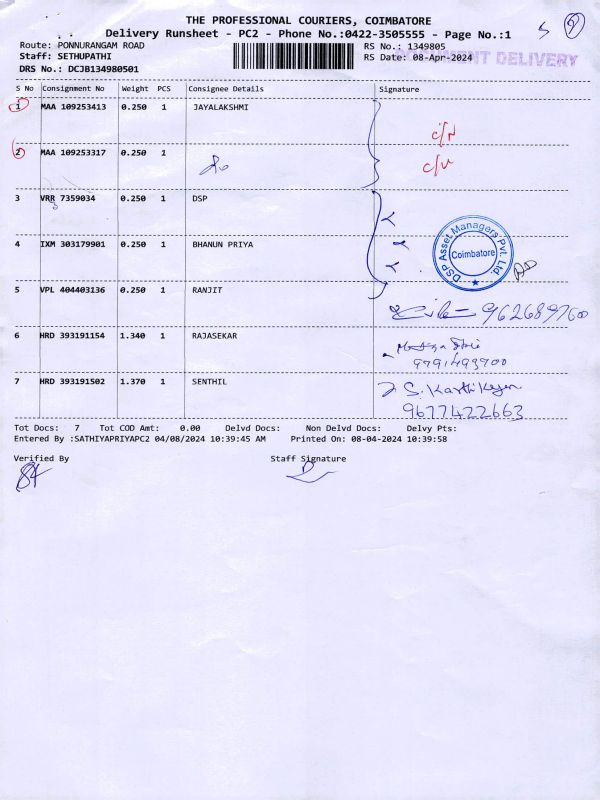 THE PROFESSIONAL COURIERS, COIMBATORE
Delivery Runsheet - PC2 - Phone No.:0422-3505555 - Page No.:1
Route: PONNURANGAM ROAD
RS No.: 1349805
Staff: SETHUPATHI
RS Date: 08-Apr-2024
DOCUMENT DELIVERY
DRS No.: DCJB134980501
S No Consignment No Weight PCS Consignee Details Signature
1 MAA 109253413 0.250 1 JAYALAKSHMI
2 MAA 109253317 0.250 1
3 VRR 7359034 0.250 1 DSP
4 IXM 303179901 0.250 1 BHANUN PRIYA
DSP Asset Managers Pvt. Ltd.
Coimbatore
5 VPL 404403136 0.250 1 RANJIT
9626897600
6 HRD 393191154 1.340 1 RAJASEKAR
9791493900
7 HRD 393191502 1.370 1 SENTHIL
S. Karthikeyen
9677422663
Tot Docs: 7 Tot COD Amt: 0.00 Delvd Docs: Non Delvd Docs: Delvy Pts:
Entered By :SATHIYAPRIYAPC2 04/08/2024 10:39:45 AM Printed On: 08-04-2024 10:39:58
Verified By Staff Signature